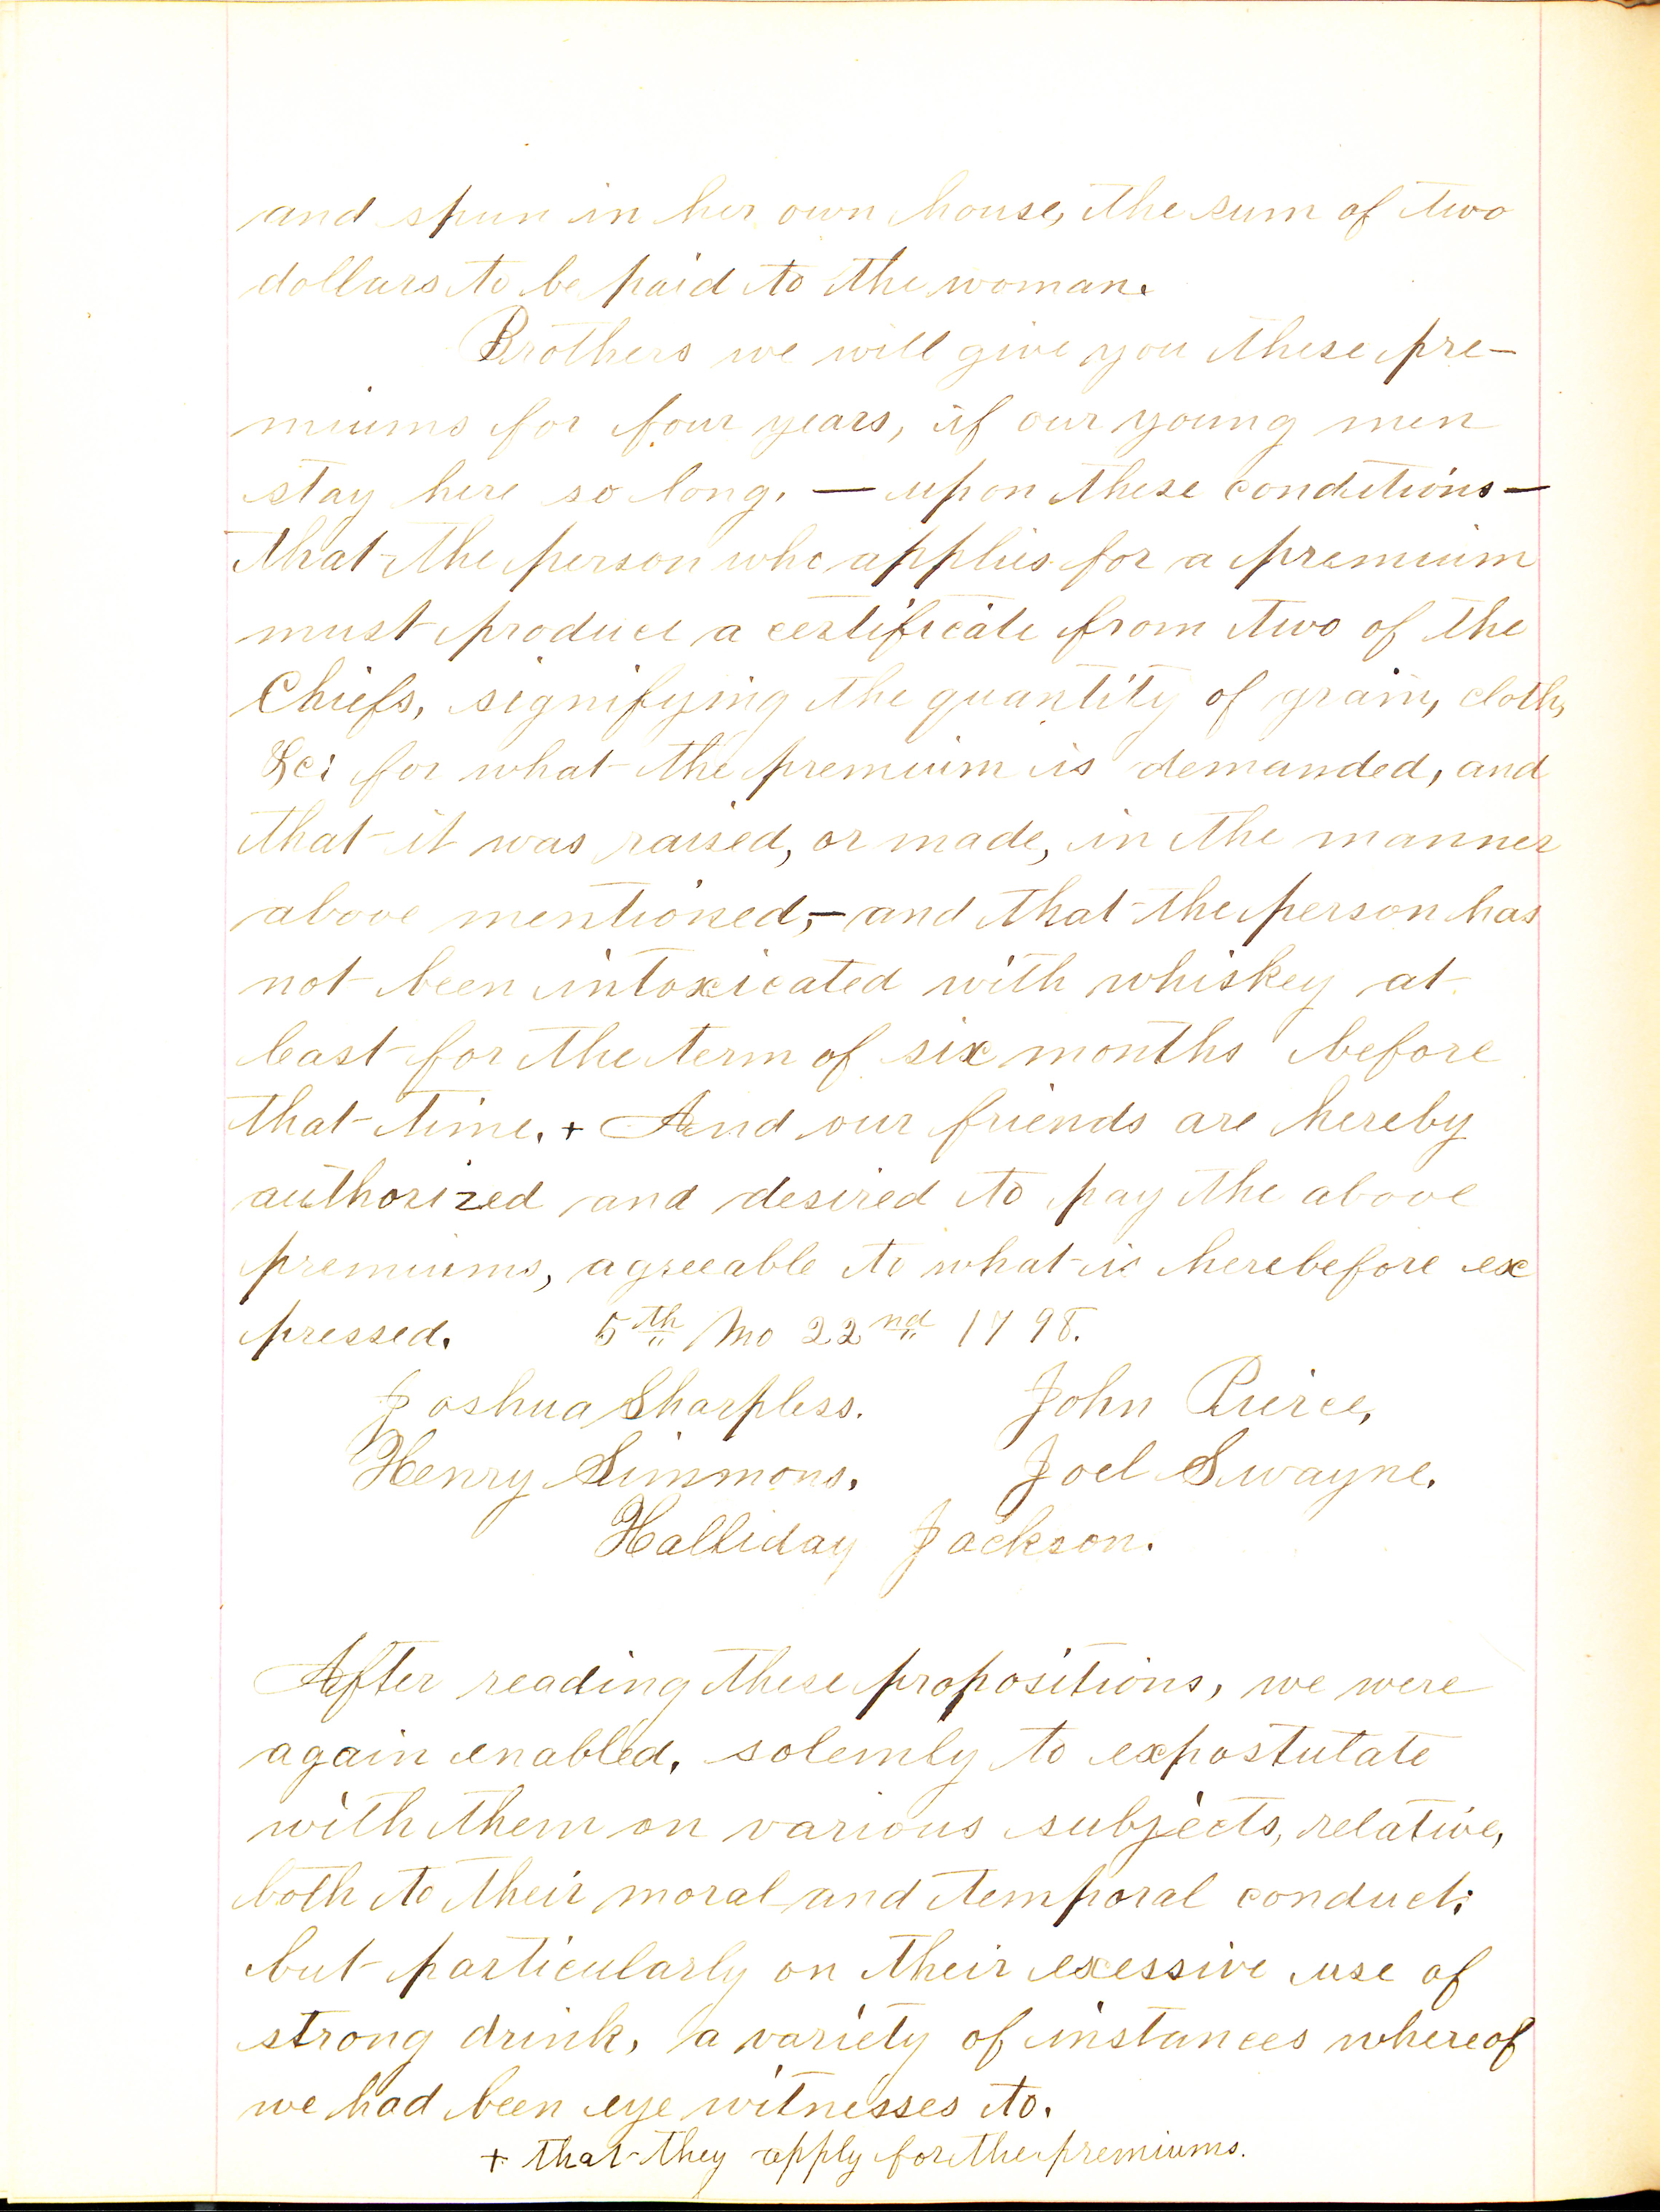 and spun in her own house, the sum of two
dollars to be paid to the woman.
Brothers we will give you these pre-
miums for four years, if our young men
stay here so long. — upon these conditions —
that the person who applies for a premium
must produce a certificate from two of the
Chiefs, signifying the quantity of grain, cloth,
&c: for what the premium is demanded, and
that it was raised, or made, in the manner
above mentioned, — and that the person has
not been intoxicated with whiskey at
least for the term of six months before
that time. + And our friends are hereby
authorized and desired to pay the above
premiums, agreeable to what is herebefore ex
pressed. 5th Mo 22nd 1798.
Joshua Sharpless. John Pierce,
Henry Simmons. Joel Swayne.
Halliday Jackson.
After reading these propositions, we were
again enabled, solemly to expostutate
with them on various subjects, relative,
both to their moral and temporal conduct:
but particularly on their excessive use of
strong drink, a variety of instances whereof
we had been eye witnesses to.
+ that they apply for the premiums.